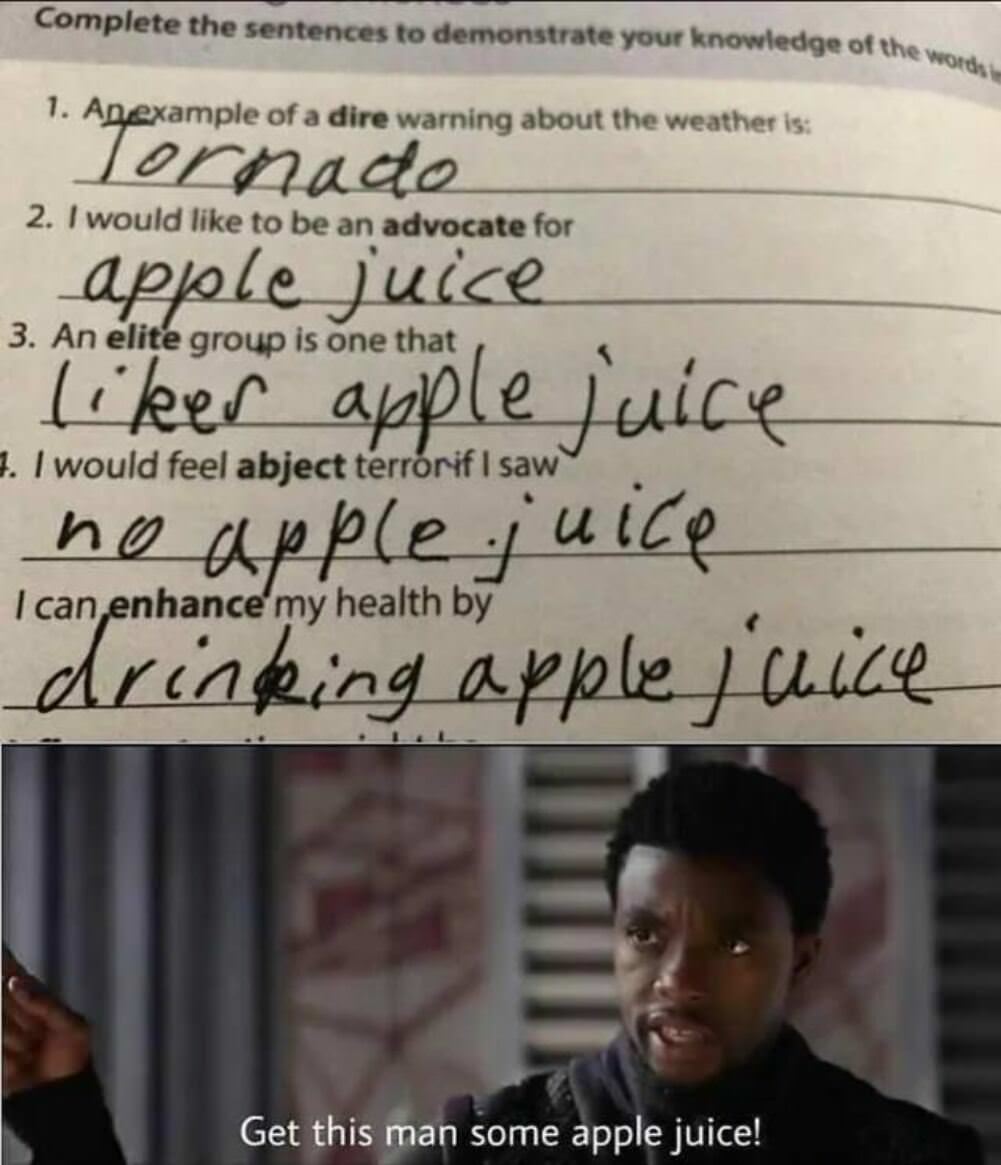 Complete the sentences to demonstrate your knowledge of the words
1. An example of a dire warning about the weather is:
Tornado
2. I would like to be an advocate for
apple juice
3. An elite group is one that
likes apple juice
4. I would feel abject terror if I saw
no apple juice
I can enhance my health by
drinking apple juice
Get this man some apple juice!